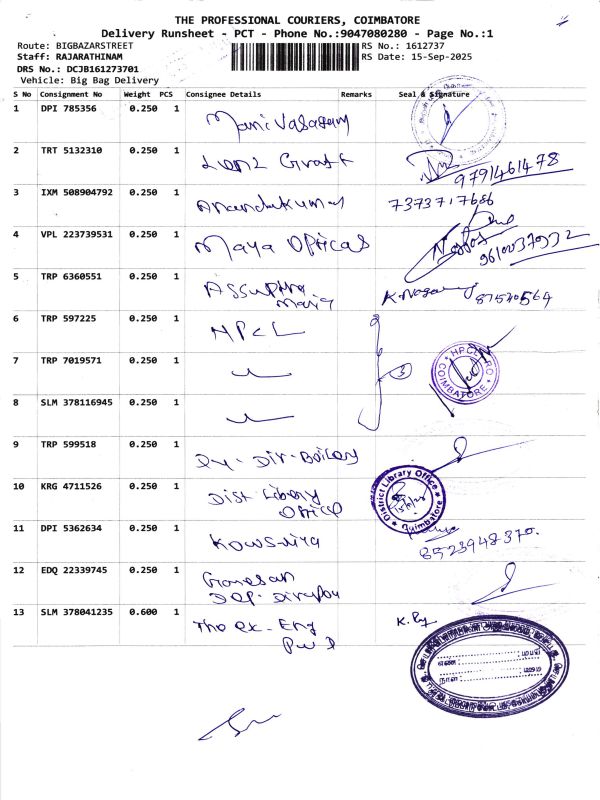 THE PROFESSIONAL COURIERS, COIMBATORE
Delivery Runsheet - PCT - Phone No.:9047080280 - Page No.:1
Route: BIGBAZARSTREET RS No.: 1612737
Staff: RAJARATHINAM RS Date: 15-Sep-2025
DRS No.: DCJB161273701
Vehicle: Big Bag Delivery
S No Consignment No Weight PCS Consignee Details Remarks Seal & Signature
1 DPI 785356 0.250 1 Manivasagam
2 TRT 5132310 0.250 1 9791461478
3 IXM 508904792 0.250 1 Anandakumar 7373717686
4 VPL 223739531 0.250 1 Maya Opticas
5 TRP 6360551 0.250 1 K. Nagamany
6 TRP 597225 0.250 1 HPCL
7 TRP 7019571 0.250 1 3
HPCL RO
COIMBATORE
8 SLM 378116945 0.250 1
9 TRP 599518 0.250 1 Dy. Dir. Boilery
10 KRG 4711526 0.250 1 Dist Library
Office
District Library Office
Coimbatore
11 DPI 5362634 0.250 1 Kowsalya
8523948370.
12 EDQ 22339745 0.250 1 Ganesan
13 SLM 378041235 0.600 1 The Ex. Eng
PWD